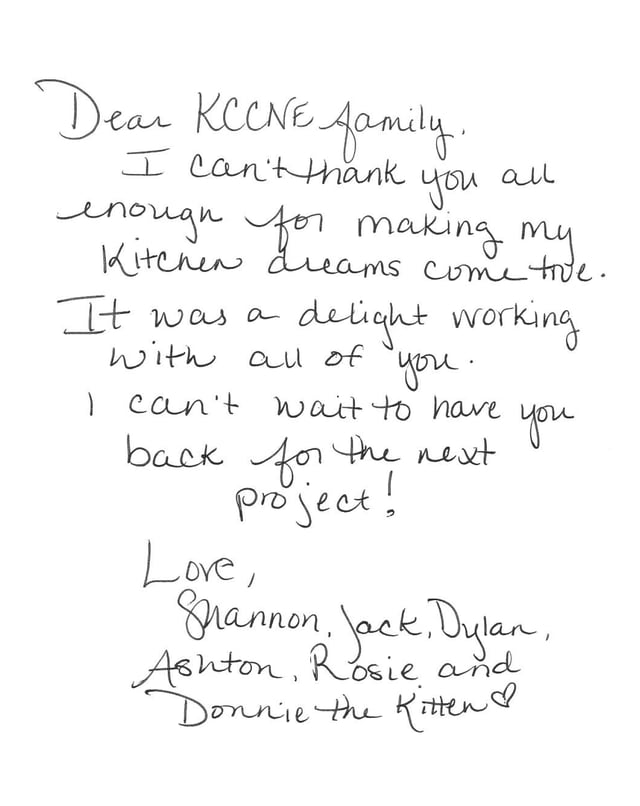 Dear KCCNE family,
I can't thank you all
enough for making my
Kitchen dreams come true.
It was a delight working
with all of you.
I can't wait to have you
back for the next
project!
Love,
Shannon, Jack, Dylan,
Ashton, Rosie and
Donnie the Kitten ♡